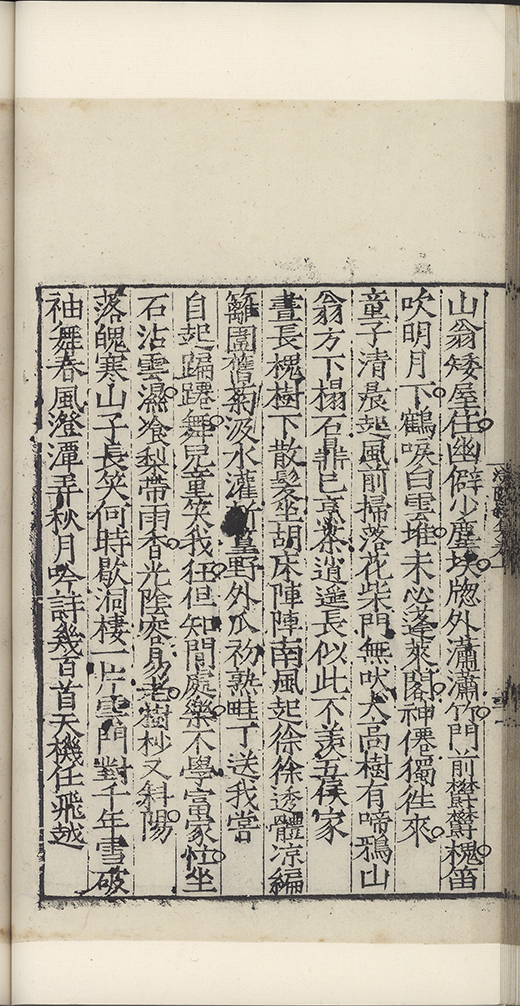 山翁矮屋住幽僻少塵埃牕外瀟瀟竹門前欝欝槐笛
吹明月下鶴唳白雲堆未必蓬萊閣神僊獨徃來
童子清晨起風前掃落花柴門無吠犬高樹有啼鴉山
翁方下榻石鼎已烹茶逍遥長似此不羡五侯家
晝長槐樹下散髮坐胡床陣陣南風起徐徐透體凉編
籬圍舊菊汲水灌新篁野外瓜初熟畦丁送我嘗
自起蹁躚舞兒童笑我狂但知閒處樂不學富家忙坐
石沾雲濕飡梨帶雨香光陰容易老樹杪又斜陽
落魄寒山子長笑何時歇洞棲一片雲門對千年雪破
袖舞春風澄潭弄秋月吟詩幾百首天機任飛越